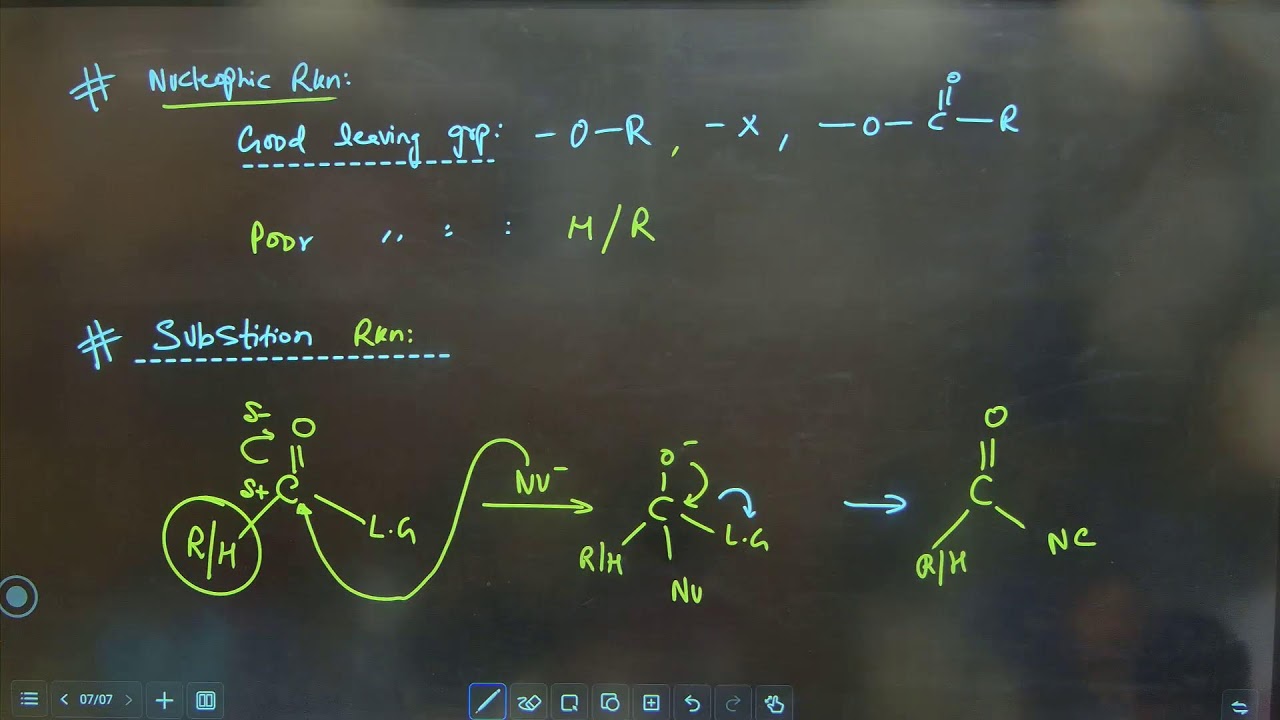 # Nucleophic Rxn:
Good leaving grp: -O-R, -X, -O-C-R
O
Poor ,, : : H/R
# Substition Rxn:
δ- O
δ+ C
R/H L.G
Nu⁻
O⁻
C
R/H L.G
Nu
O
C
R/H NC
07/07